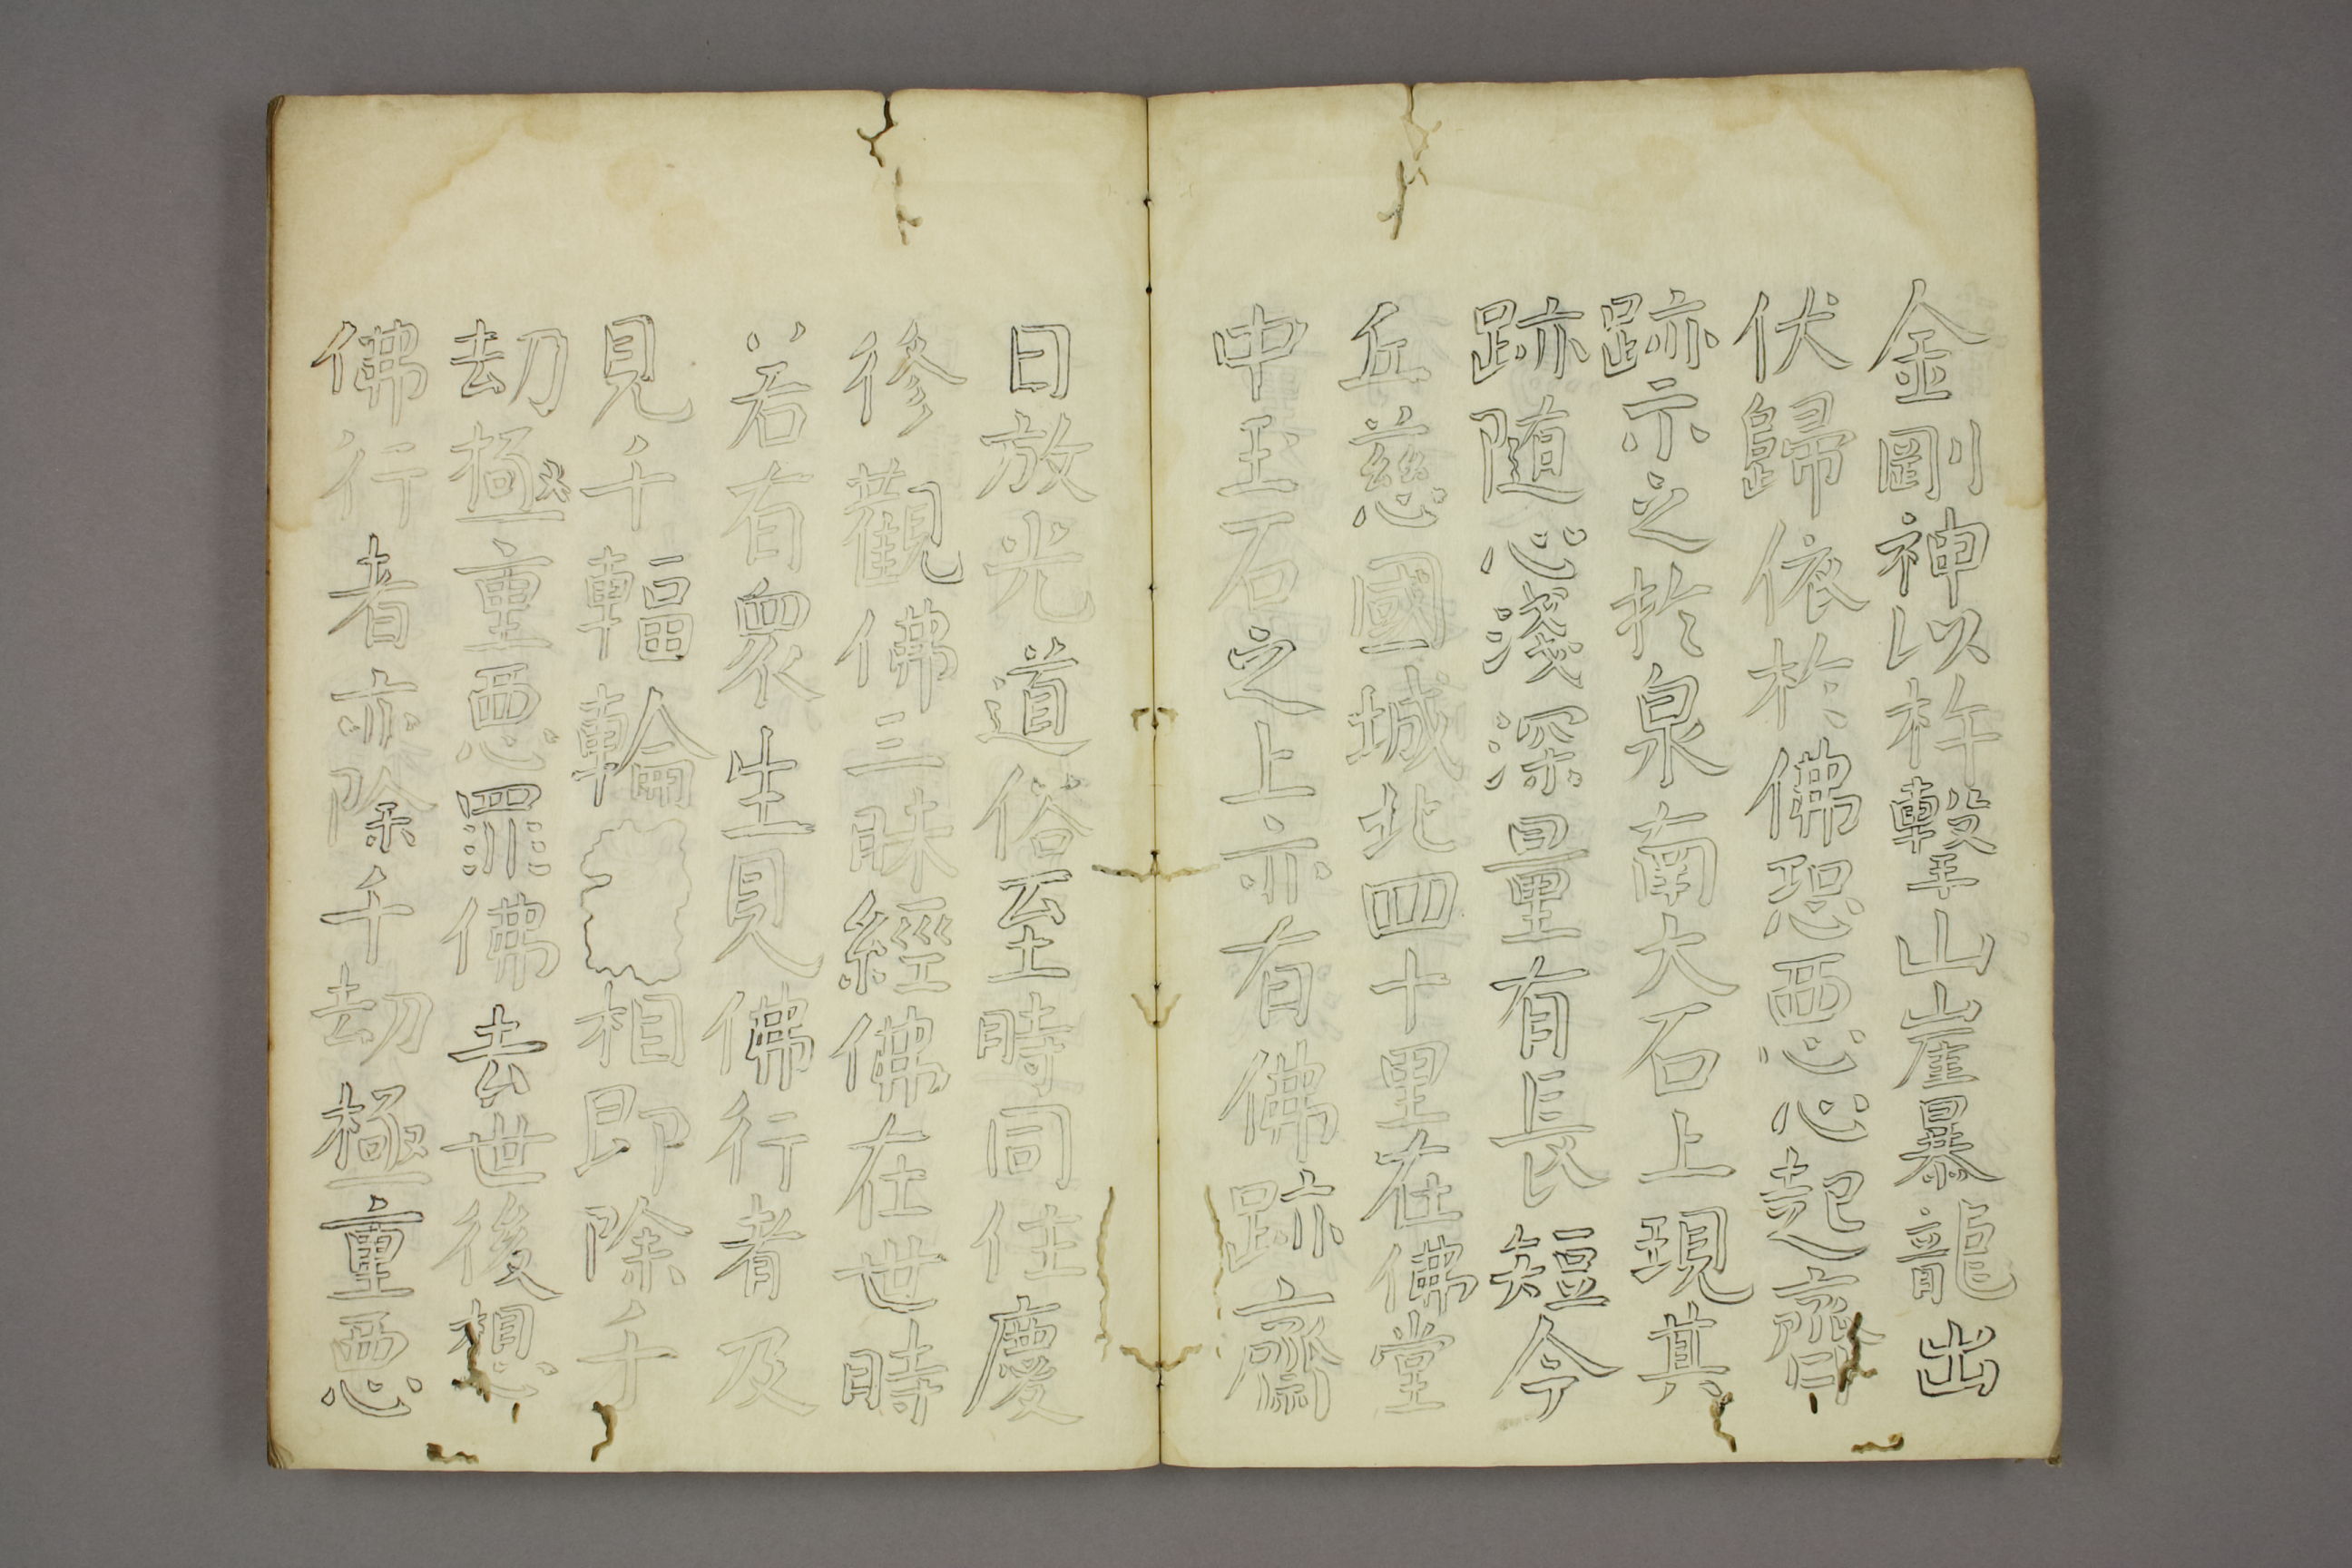 金剛神以杵擊山崖暴龍出
伏歸依於佛恐惡心起齊
跡示之於泉南大石上現其
跡隨心淺深量有長短今
丘慈國城北四十里在佛堂
中玉石之上亦有佛跡齋
日放光道俗至時同往慶
修觀佛三昧經佛在世時
若有衆生見佛行者及
見千輻輪相即除千
劫極重惡罪佛去世後想
佛行者亦除千劫極重惡